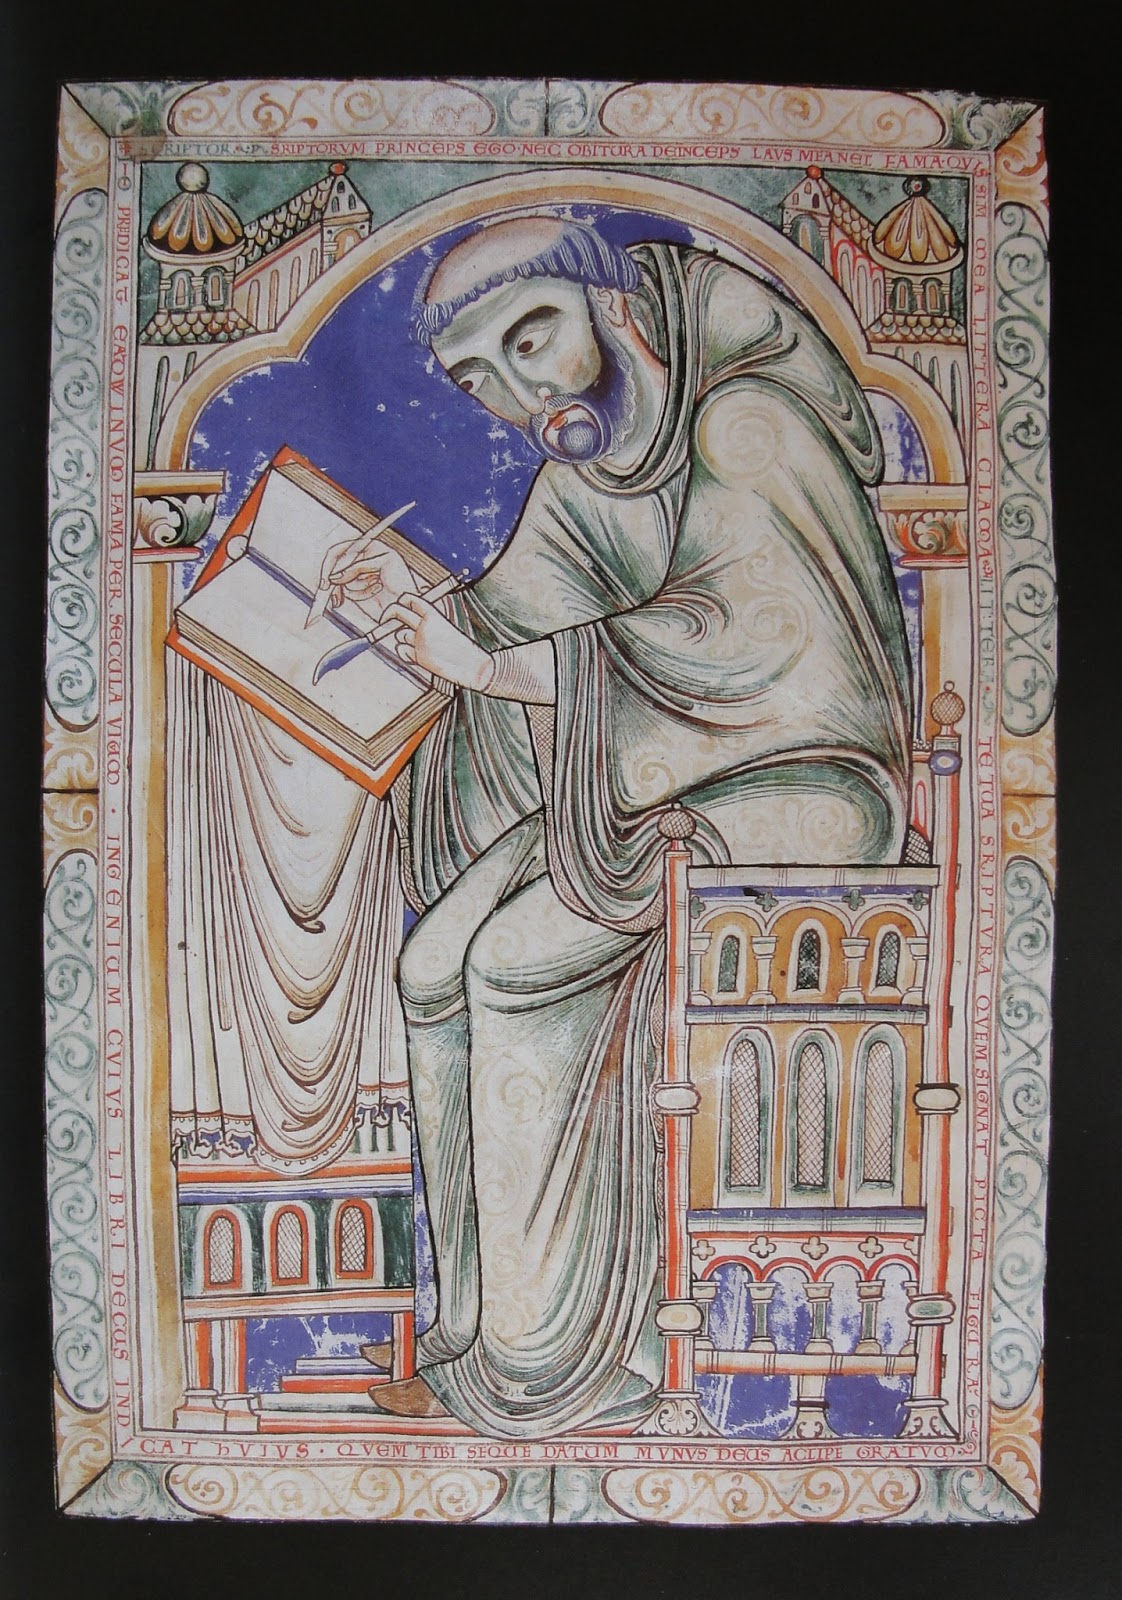 SCRIPTOR SRIPTORUM PRINCEPS EGO·NEC OBITURA DEINCEPS LAUS MEA NEC FAMA·QUIS
SIM MEA LITTERA CLAMA·
TE TUA SRIPTURA QUEM SIGNAT PICTA FIGURA·
PREDICAT EADWINUM FAMA PER SECULA VIUUM · INGENIUM CUIUS LIBRI DECUS IND
ICAT HUIUS · QUEM TIBI SEQUE DATUM MUNUS DEUS ACCIPE GRATUM·